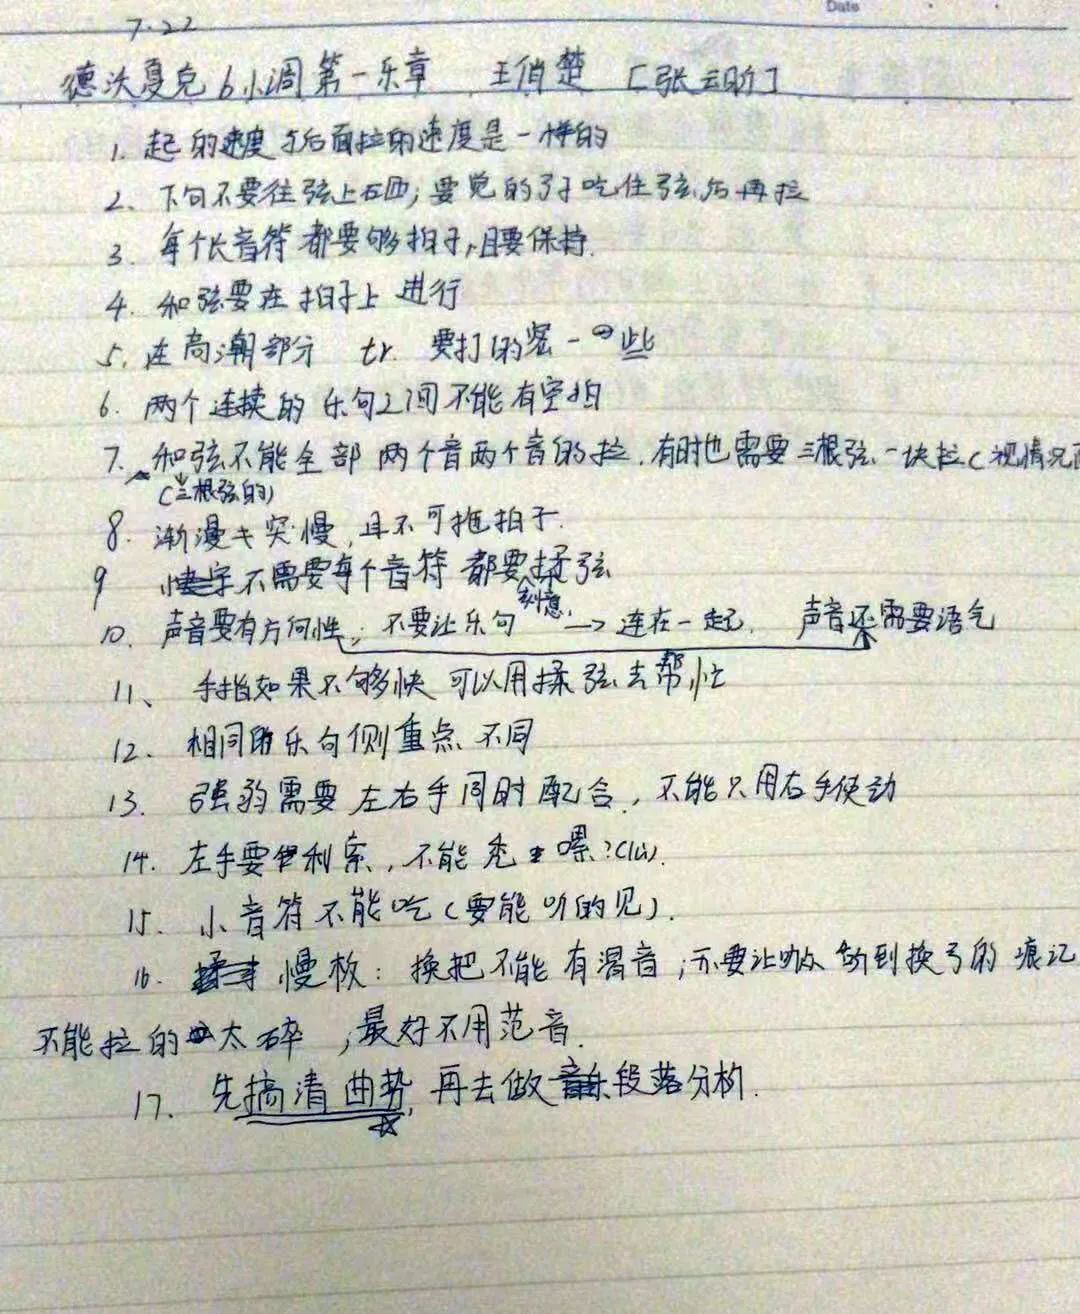 Date
7.22
德沃夏克 b小调第一乐章 王俏楚 [张云昕]
1. 起的速度与后面拉的速度是一样的
2、下句不要往弦上砸;要觉的弓子吃住弦后再拉
3. 每个长音符都要够拍子,且要保持.
4. 和弦要在拍子上进行
5. 在高潮部分 tr. 要打的密一些
6. 两个连续的乐句之间不能有空拍
7. 和弦不能全部两个音两个音的拉. 有时也需要三根弦一块拉(视情况而
(三根弦的)
8. 渐慢≠突慢,且不可拖拍子.
9 不需要每个音符都要揉弦
刻意
10. 声音要有方向性; 不要让乐句 → 连在一起. 声音还需要语气
11、 手指如果不够快可以用揉弦去帮忙
12. 相同的乐句侧重点不同
13. 强弱需要左右手同时配合,不能只用右手使劲
14. 左手要利索,不能秃噜?(lu).
15. 小音符不能吃(要能听的见).
16. 慢板:换把不能有滑音;不要让听到换弓的痕记
不能拉的太碎;最好不用范音.
17. 先搞清曲势,再去做段落分析.